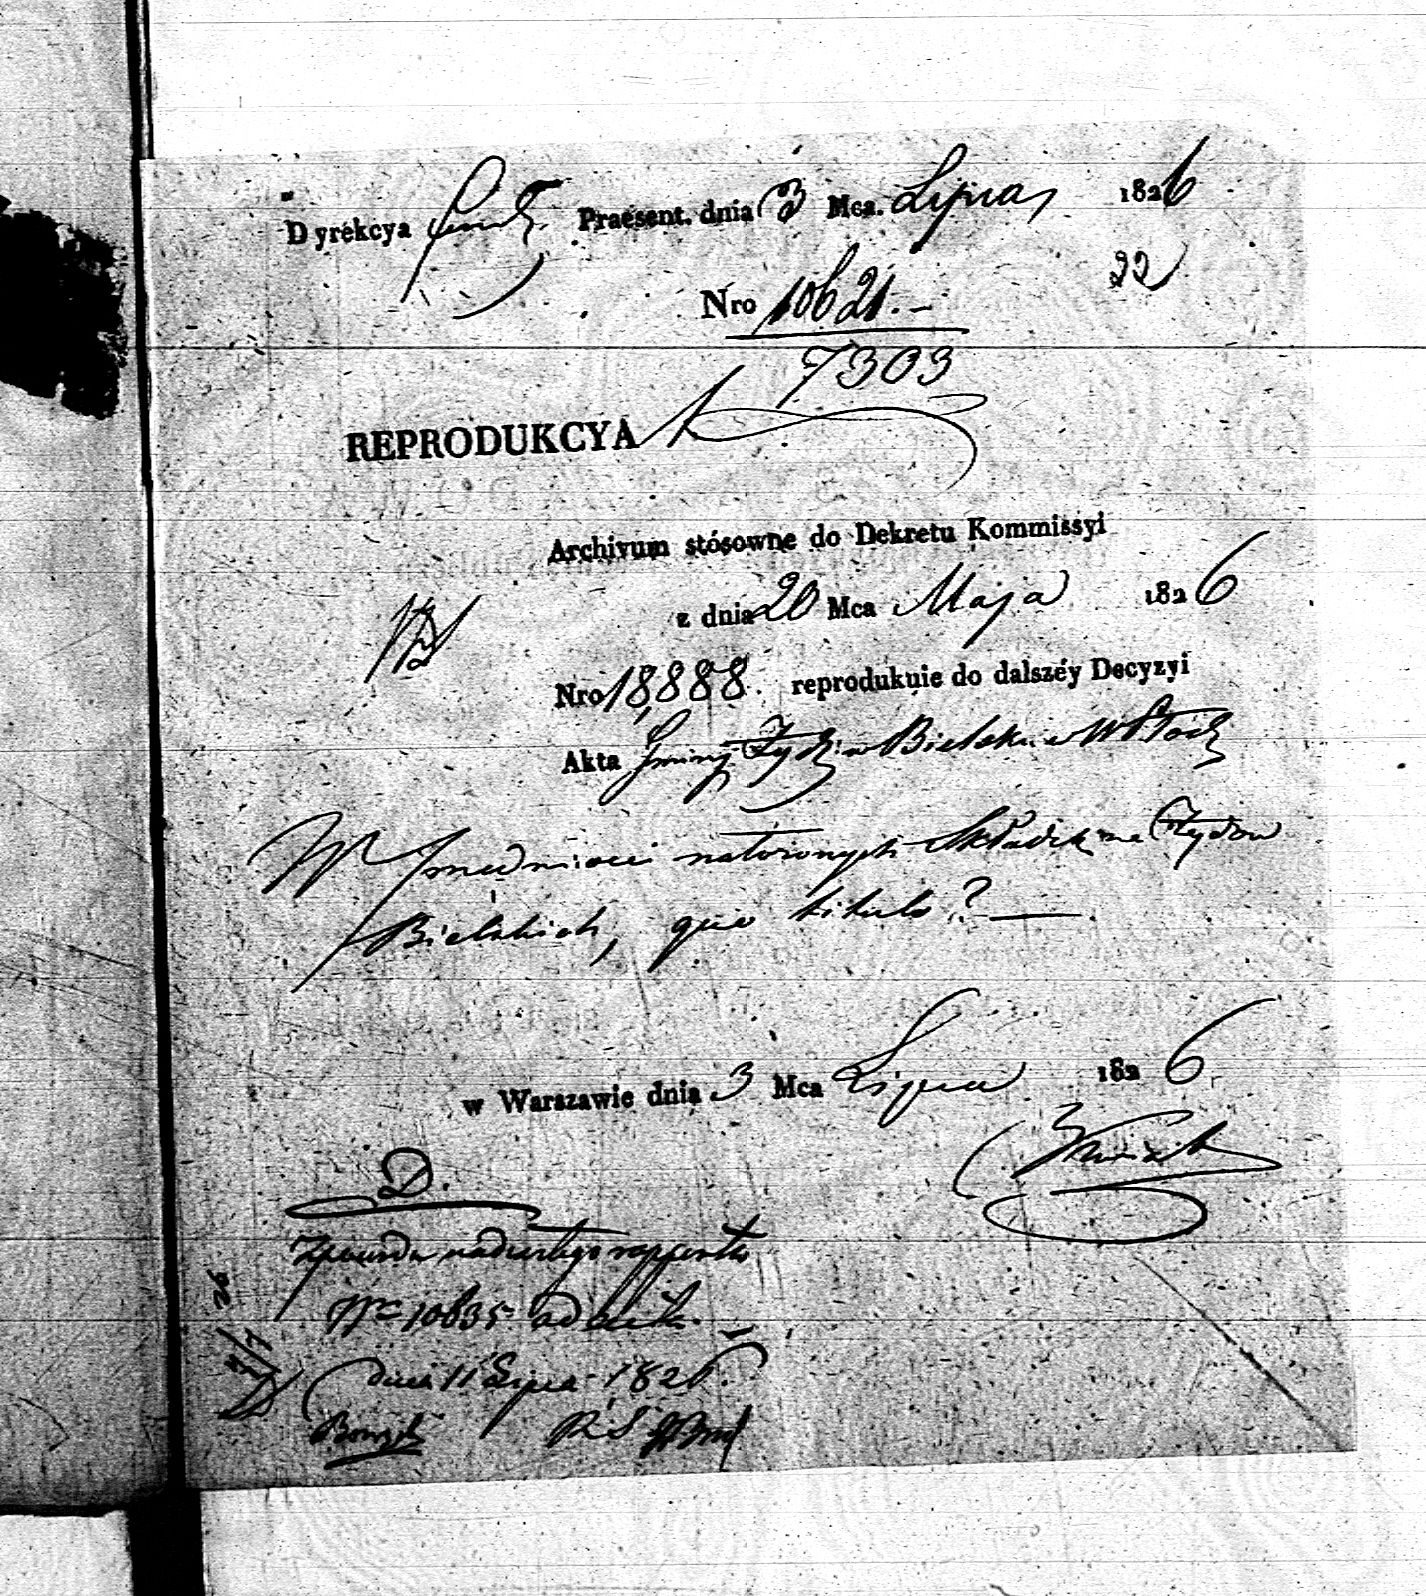 Dyrekcya Praesent. dnia 3 Mca. Lipca 1826
22
Nro 10621.—
7303
REPRODUKCYA
Archivum stósowne do Dekretu Kommissyi
z dnia 20 Mca Maja 1826
Nro 18,888. reprodukuie do dalszéy Decyzyi
Akta Gminy Żydów Bielsku w
W przedmiocie nałożonych składek na Żydów
Bielskich, quo titulo? —
w Warszawie dnia 3 Mca Lipca 1826
D.
rapportu
Nro 10635
dnia 11 Lipca 1826.